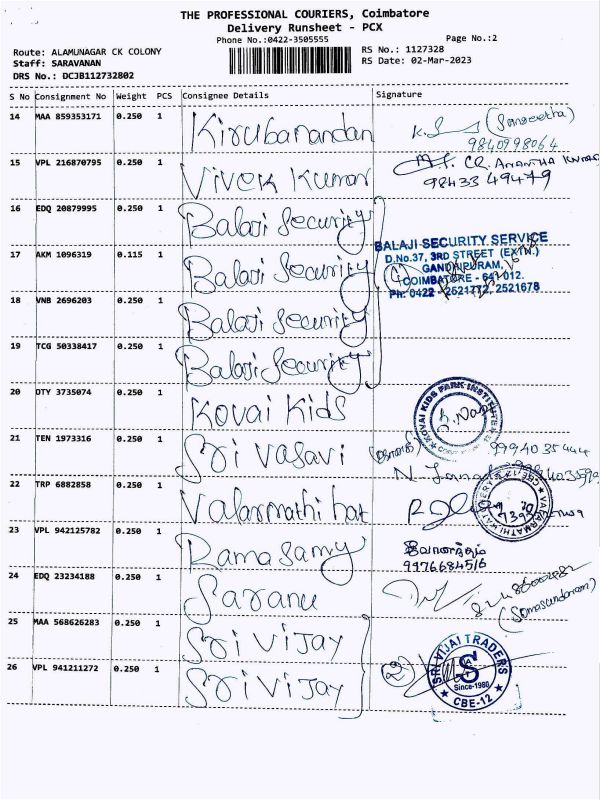 THE PROFESSIONAL COURIERS, Coimbatore
Delivery Runsheet - PCX
Phone No.:0422-3505555
Page No.:2
Route: ALAMUNAGAR CK COLONY
RS No.: 1127328
Staff: SARAVANAN
RS Date: 02-Mar-2023
DRS No.: DCJB112732802
S No Consignment No Weight PCS Consignee Details Signature
14 MAA 859353171 0.250 1 Kirubanandan (Sangeetha)
9840998064
15 VPL 216870795 0.250 1 Vivek Kumar CR. ANANTHA KUMAR
98433 49479
16 EDQ 20879995 0.250 1 Balaji Security
BALAJI SECURITY SERVICE
D.No.37, 3RD STREET (EXTN.)
17 AKM 1096319 0.115 1 Balaji Security
GANDHIPURAM,
COIMBATORE - 641 012.
Ph: 0422 - 2521772, 2521678
18 VNB 2696203 0.250 1 Balaji Security
19 TCG 50338417 0.250 1 Balaji Security
20 OTY 3735074 0.250 1 Kovai Kids
KOVAI KIDS PARK INSTITUTE
21 TEN 1973316 0.250 1 Sri Vasavi
99940 35444
22 TRP 6882858 0.250 1 Valarmathi hat
23 VPL 942125782 0.250 1 Ramasamy
9976684516
24 EDQ 23234188 0.250 1 Saranu
(Somasundaram)
25 MAA 568626283 0.250 1 Sri Vijay
26 VPL 941211272 0.250 1 Sri Vijay (2)
SRI VIJAI TRADERS
S
Since-1980
CBE-12